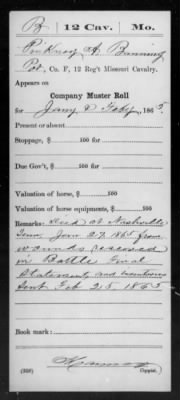 B | 12 Cav. | Mo.
Pinkney A. Banning
Pvt., Co. F, 12 Reg't Missouri Cavalry.
Appears on
Company Muster Roll
for Jany & Feby, 1865.
Present or absent
Stoppage, $ 100 for
Due Gov't, $ 100 for
Valuation of horse, $ 100
Valuation of horse equipments, $ 100
Remarks: Died at Nashville
Tenn Jan 27 1865 from
wounds received
in Battle Final
Statements and inventories
sent Feb 25 1865
Book mark:
(358)
Copyist.